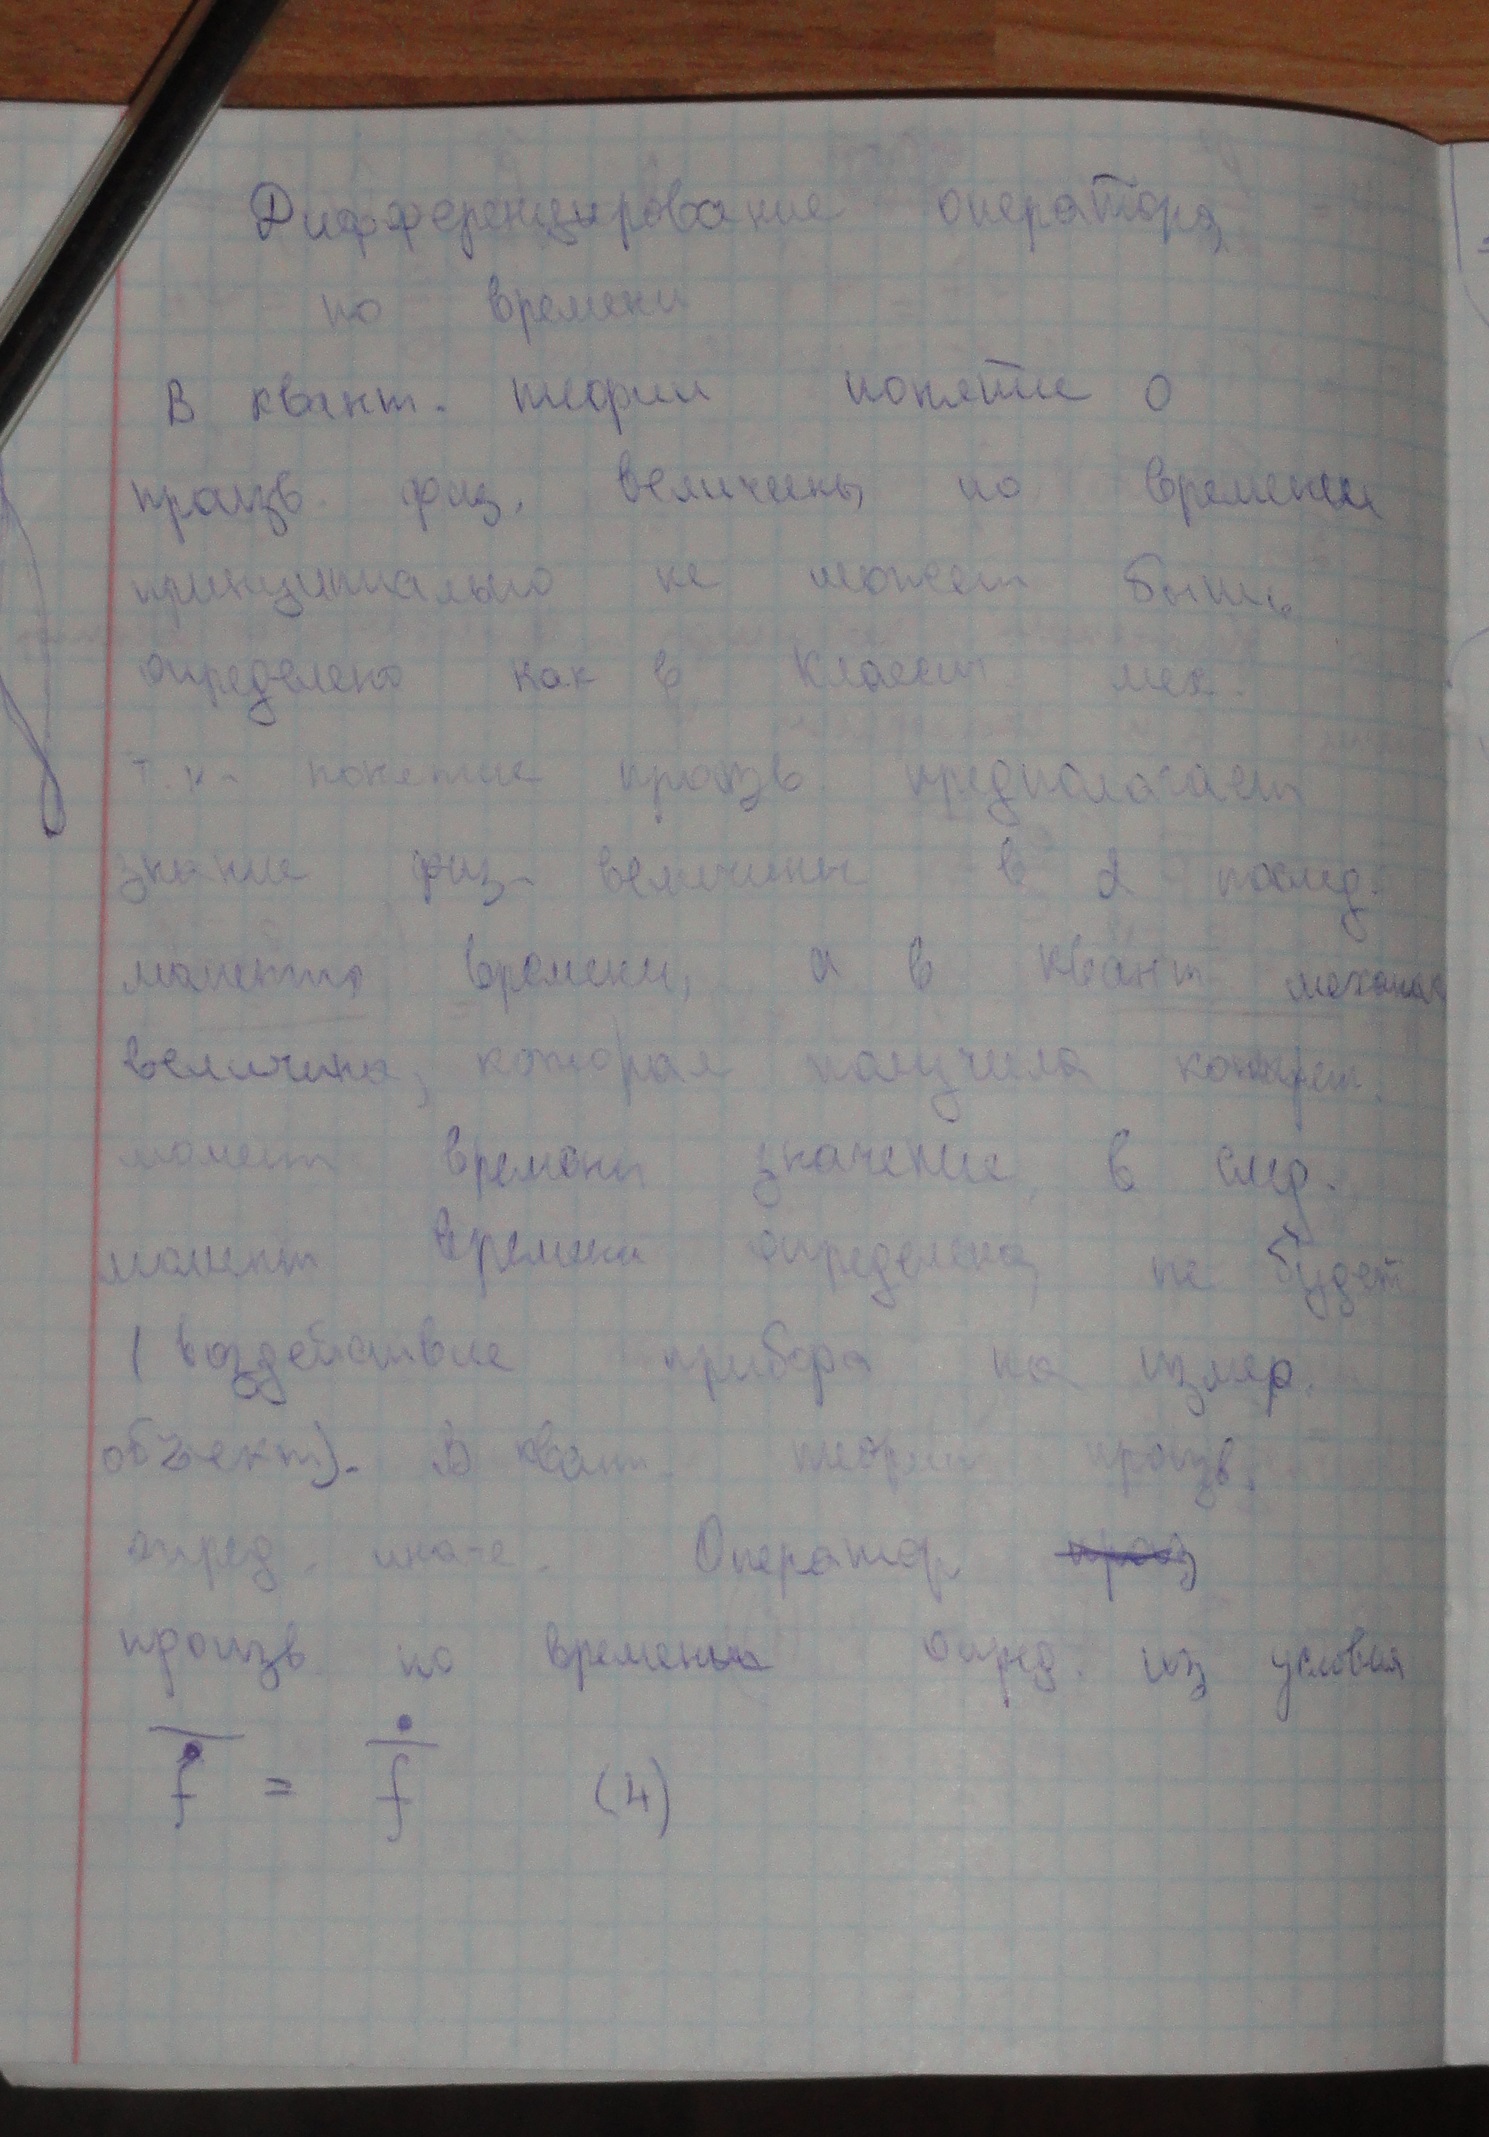 Дифференцирование оператора
по времени
В квант. теории понятие о
произв. физ. величины по времени
принципиально не может быть
определено как в классич мех.
т.к. понятие произв. предполагает
знание физ. величины в 2 послед.
момента времени, а в квант механике
величина, которая получила конкрет.
момент времени значение, в след.
момент времени определена не будет
(воздействие прибора на измер.
объект). В квант. теории произв.
опред. иначе. Оператор произ
произв по времени опред. из условия
$\overline{\dot{f}} = \dot{\overline{f}}$ (4)